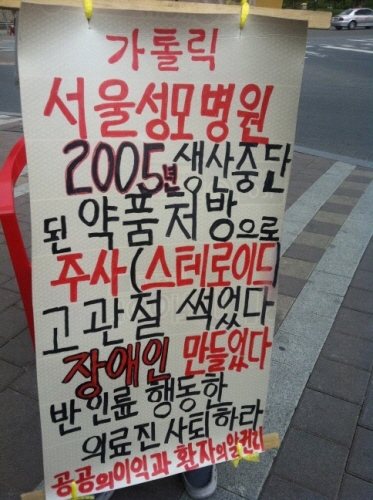 가톨릭
서울성모병원
2005년생산중단
된 약품처방으로
주사(스테로이드)
고관절 썩었다
장애인 만들었다
반인륜 행동하
의료진사퇴하라
공공의이익과 환자의알권리